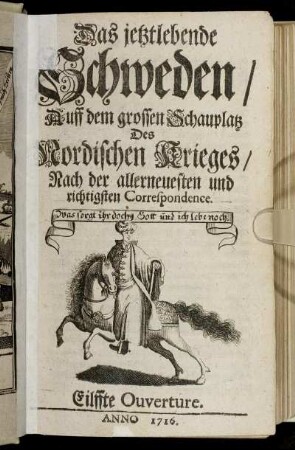 Das jetztlebende
Schweden/
Auff dem grossen Schauplatz
Des
Nordischen Krieges/
Nach der allerneuesten und
richtigsten Correspondence.
Was sorgt ihr doch? Gott und ich lebe noch.
Eilffte Ouverture.
ANNO 1716.